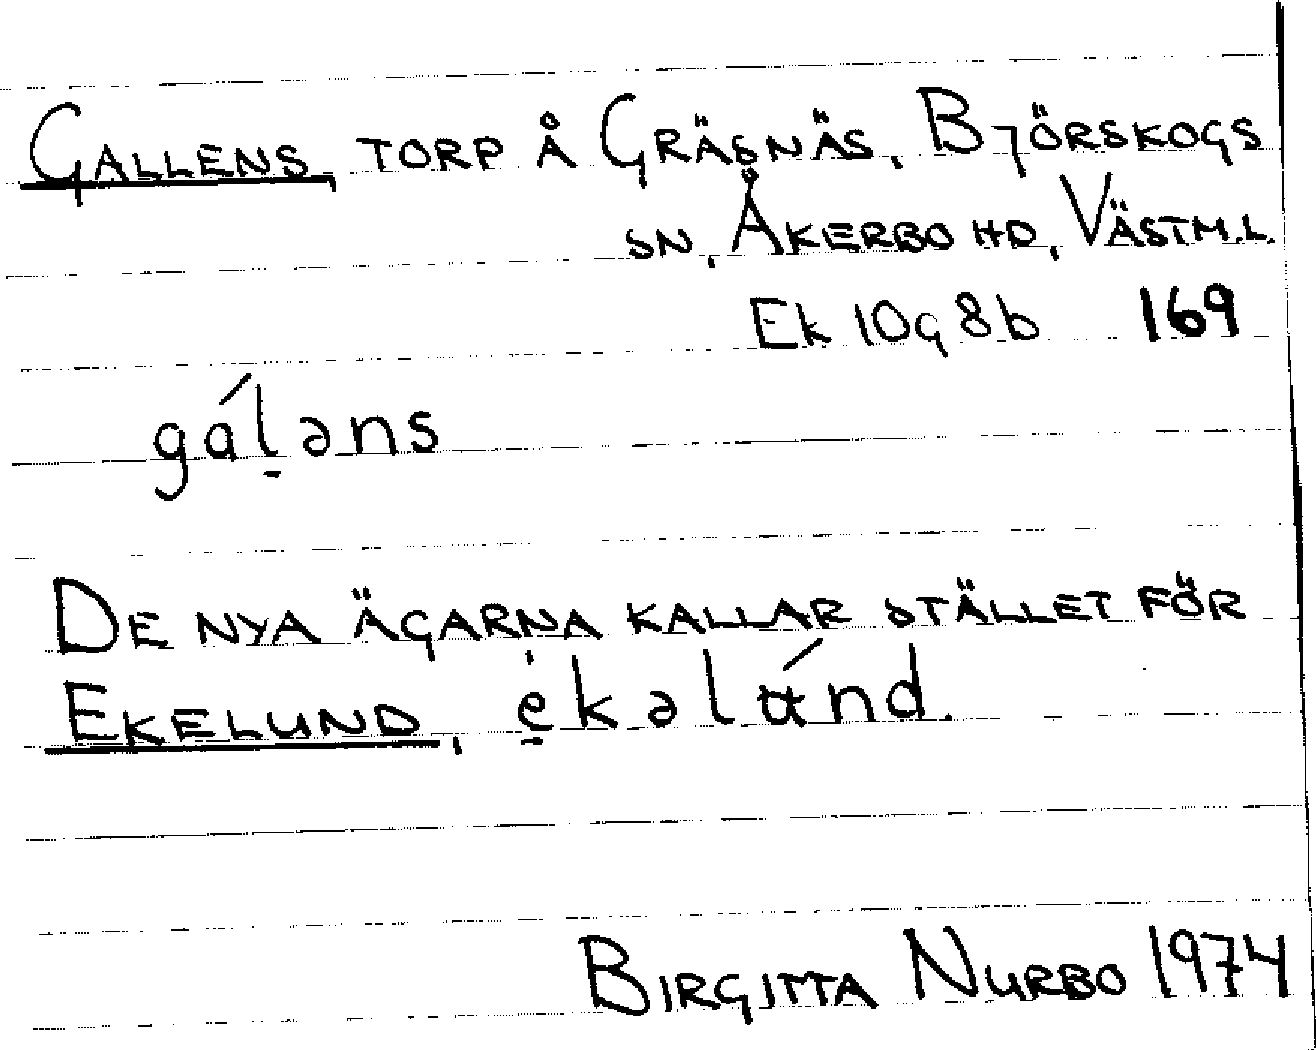 GALLENS, TORP Å GRÄSNÄS, BJÖRSKOGS
SN, ÅKERBO HD, VÄSTM.L.
Ek 10g 8b 169
gáḷəns
DE NYA ÄGARNA KALLAR STÄLLET FÖR
EKELUND, èkəlánd.
BIRGITTA NURBO 1974